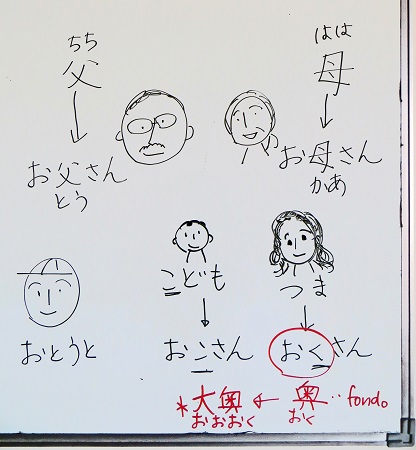 ちち
父
お父さん
とう
はは
母
お母さん
かあ
こども
おこさん
つま
おくさん
おとうと
*大奥 ← 奥‥fondo
おおおく おく